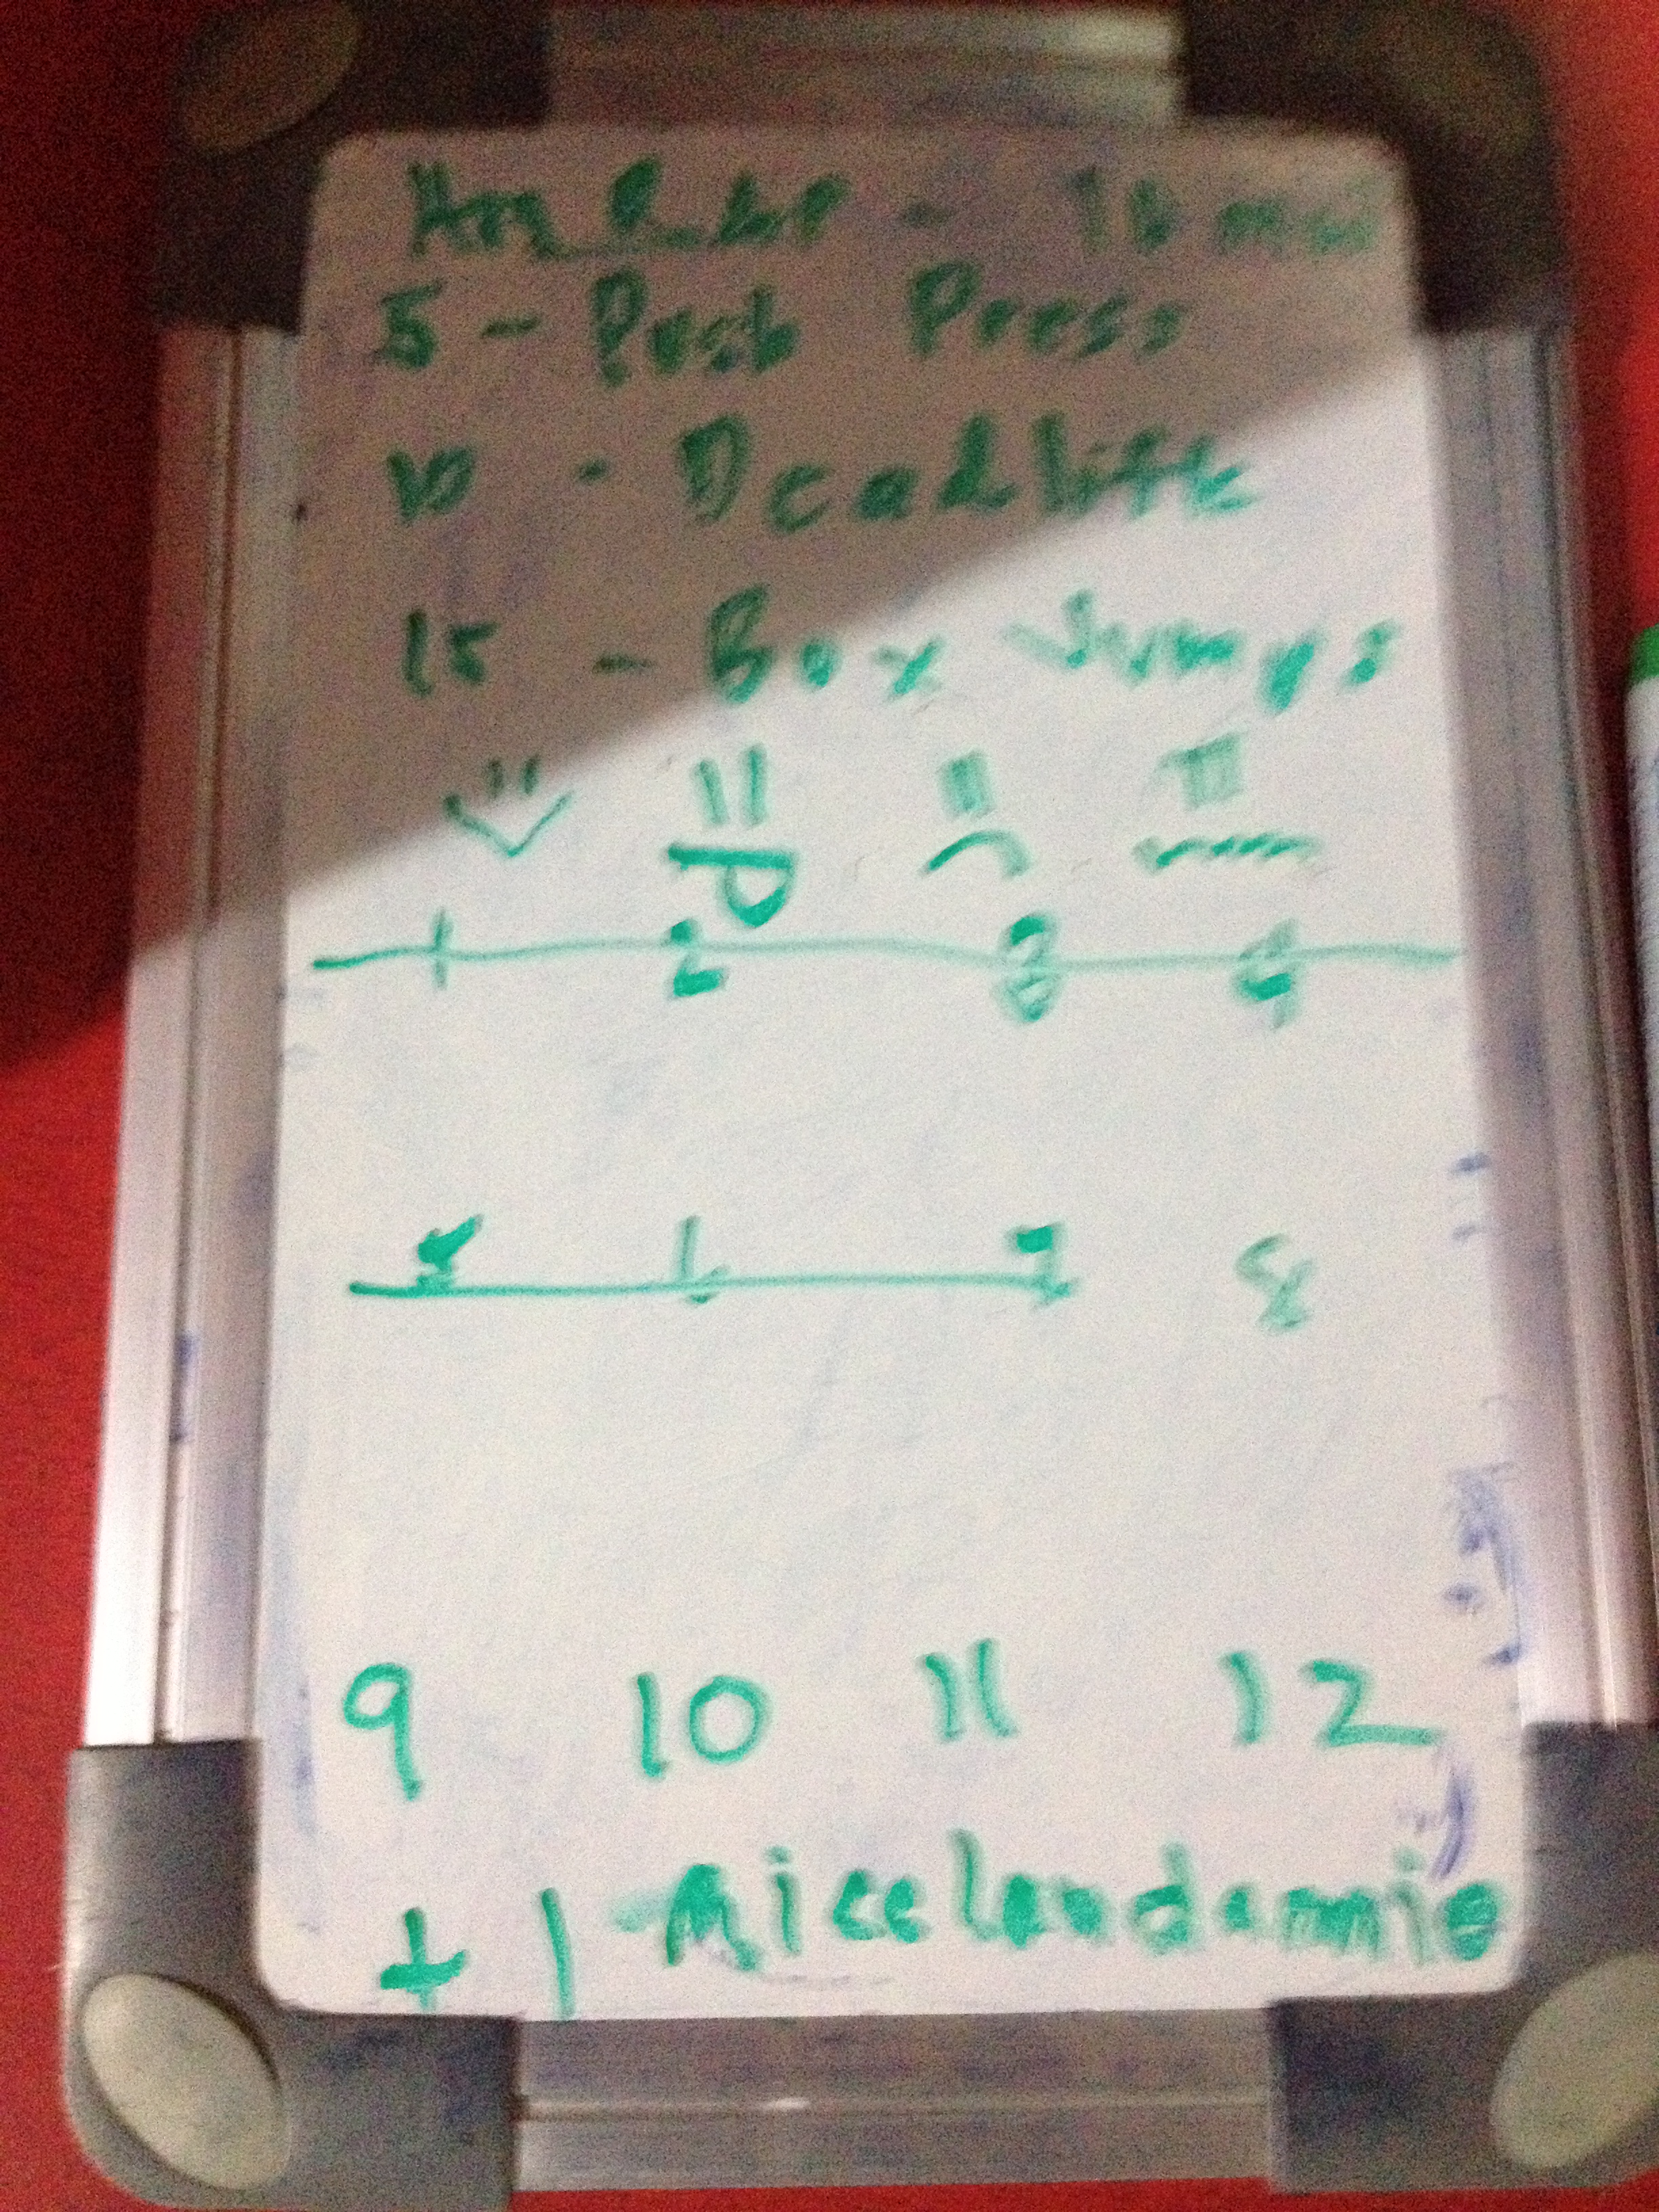 5 - Push Press
10 - Deadlift
15 - Box Jumps
1 2 3 4
5 6 7 8
9 10 11 12
+ 1